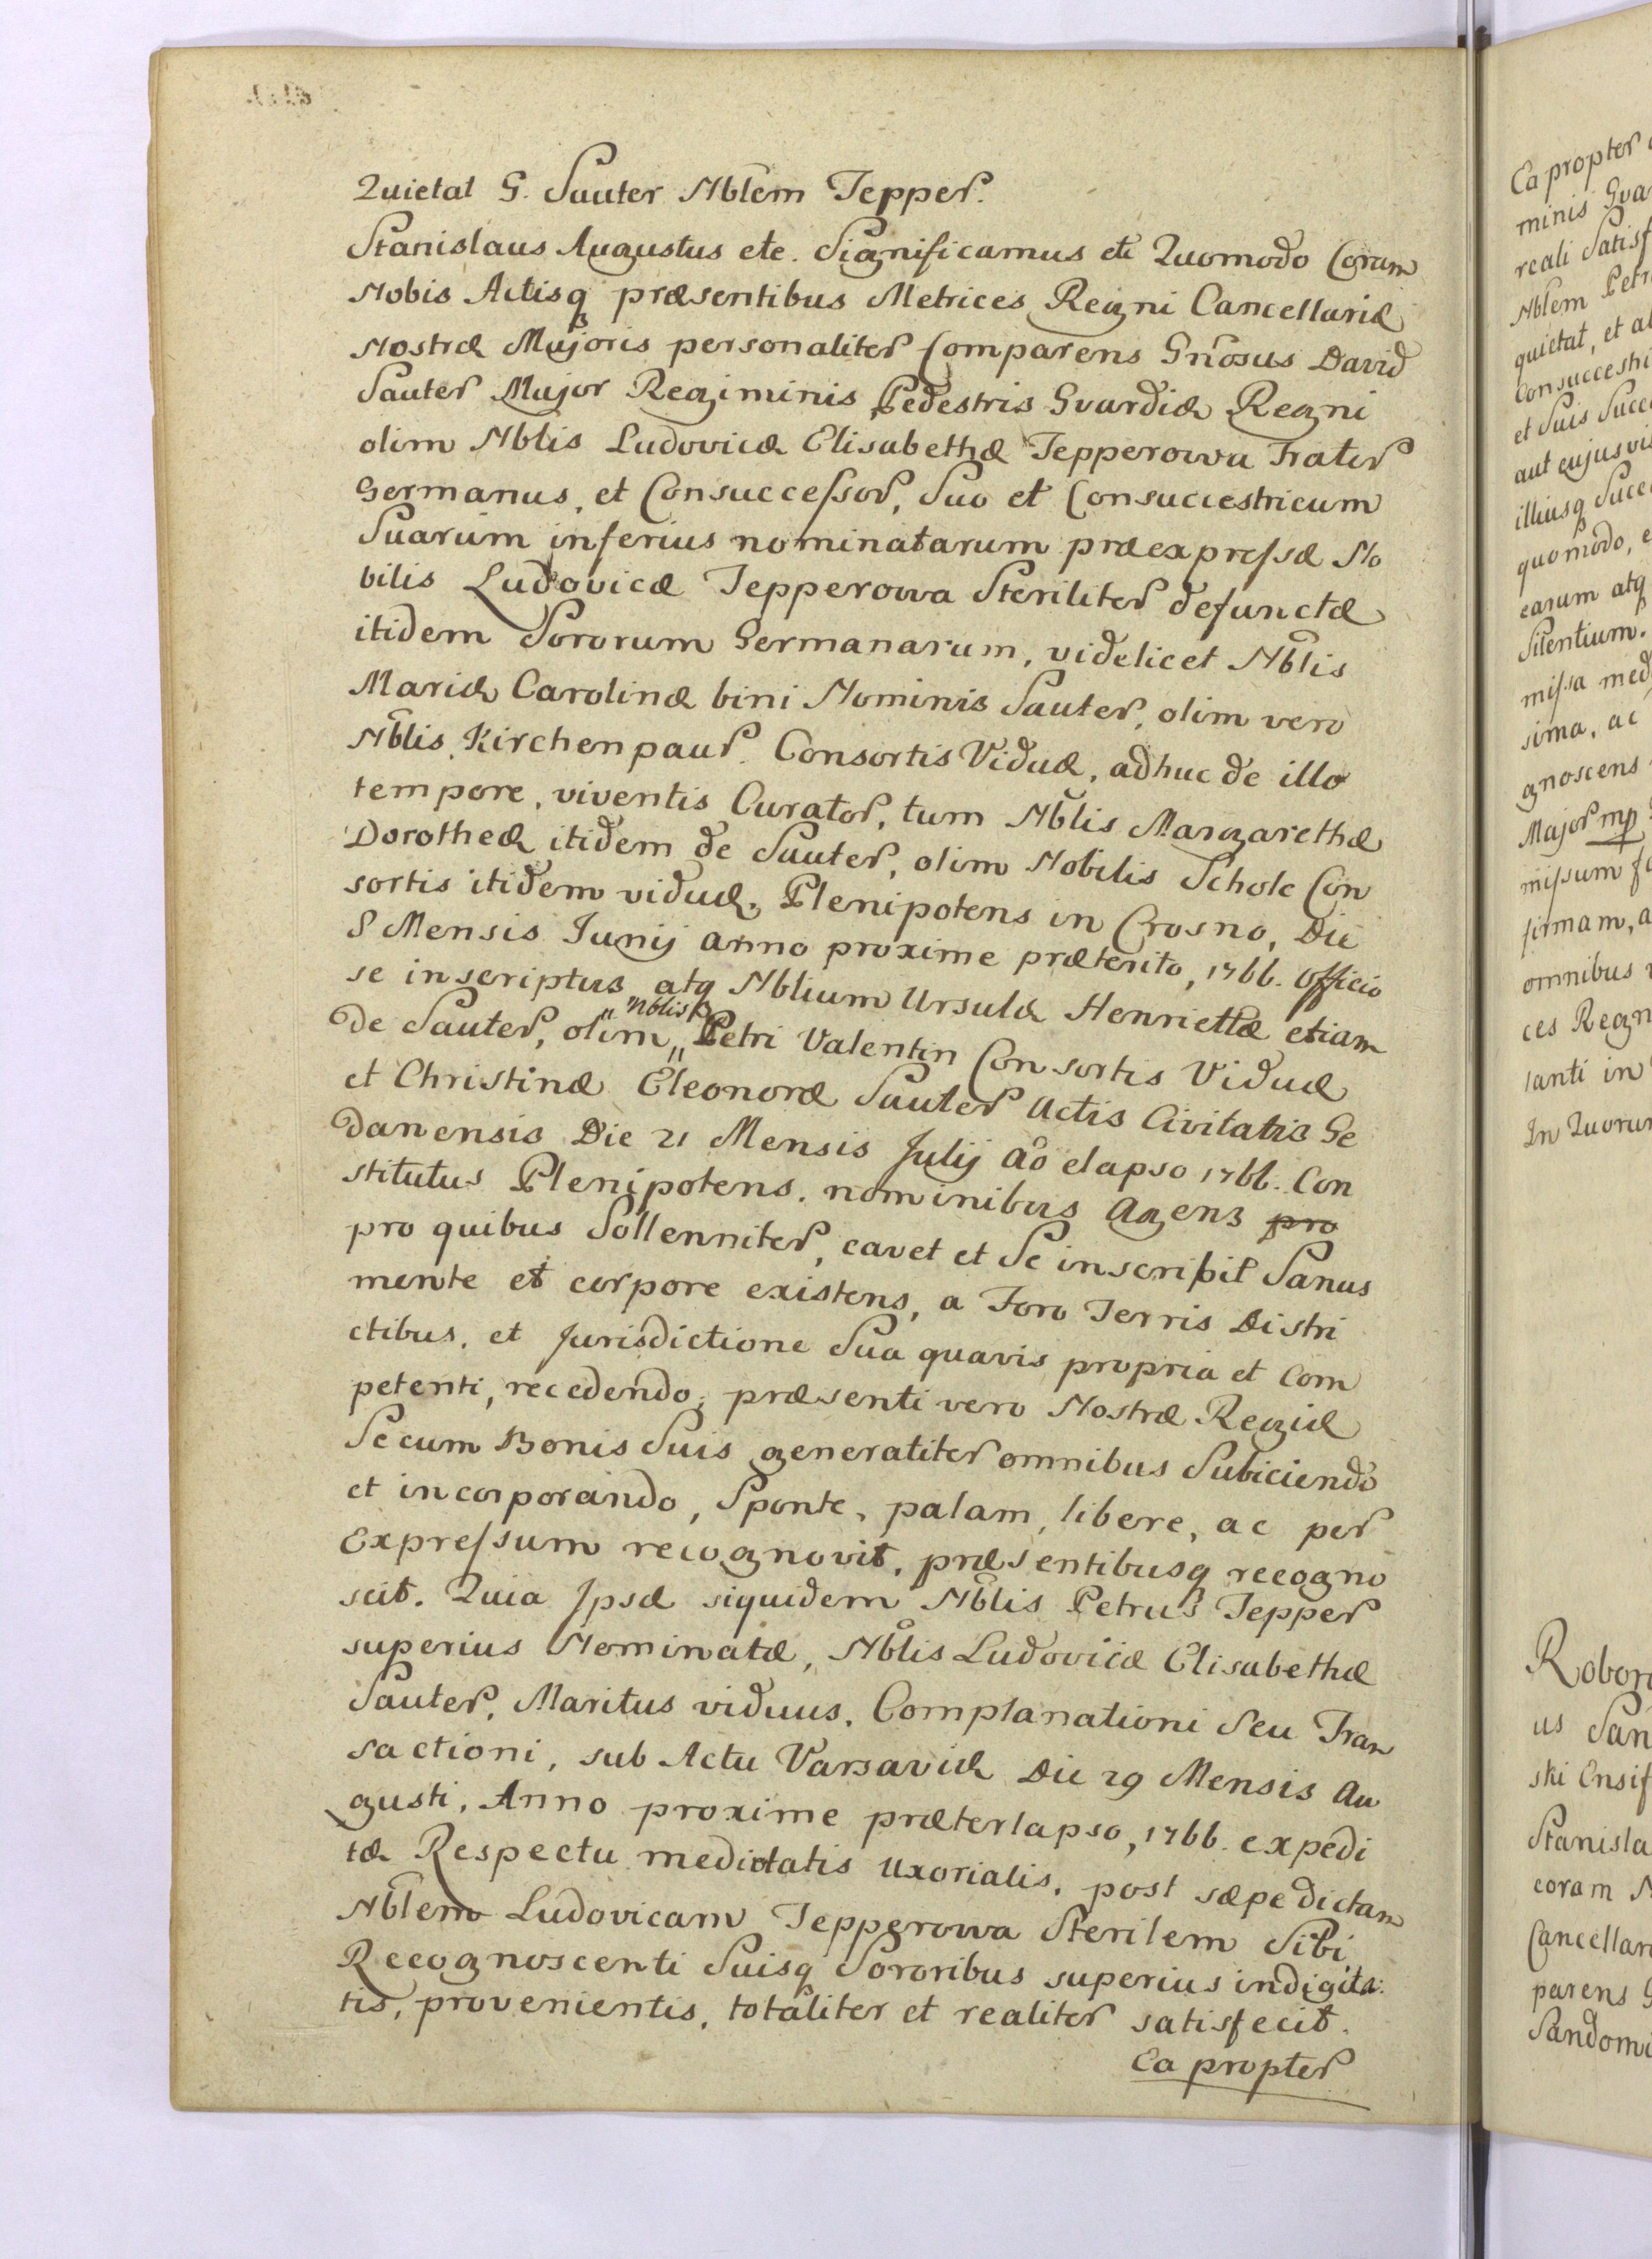 Quietat G. Sauter Nblem Tepper.
Stanislaus Augustus etc. Significamus etc Quomodo Coram
Nobis Actisq præsentibus Metrices Regni Cancellariæ
Nostræ Majoris personaliter Comparens Gnosus David
Sauter Major Regiminis Pedestris Gvardiæ Regni
olim Nblis Ludovicæ Elisabethæ Tepperowa Frater
Germanus, et Consuccessor, Suo et Consuccestricum
Suarum inferius nominatarum præexpressæ No
bilis Ludovicæ Tepperowa Steriliter defunctæ
itidem Sororum Germanarum, videlicet Nblis
Mariæ Carolinæ bini Nominis Sauter, olim vero
Nblis Kirchenpaur Consortis Viduæ, adhuc de illo
tempore, viventis Curator, tum Nblis Margarethæ
Dorotheæ itidem de Sauter, olim Nobilis Scholc Con
sortis itidem viduæ, Plenipotens in Crosno, Die
8 Mensis Junij anno proxime præterito, 1766. Officio
se inscriptus atq Nblium Ursulæ Henriettæ etiam
de Sauter, olim " Nblis " Petri Valentin Consortis Viduæ
et Christinæ Eleonoræ Sauter Actis Civitatis Ge
danensis Die 21 Mensis Julij ao elapso 1766. Con
stitutus Plenipotens, nominibus agens pro
pro quibus Sollenniter, cavet et Se inscribit Sanus
mente et corpore existens, a Foro Terris Distri
ctibus, et Jurisdictione Sua quavis propria et Com
petenti, recedendo, præsenti vero Nostræ Regiæ
Se cum Bonis Suis generaliter omnibus Subiciendo
et incorporando, Sponte, palam, libere, ac per
Expressum recognovit, præsentibusq recogno
scit. Quia Ipsæ siquidem Nblis Petrus Tepper
superius Nominatæ, Nblis Ludovicæ Elisabethæ
Sauter, Maritus viduus, Complanationi Seu Tran
sactioni, sub Actu Varsaviæ Die 29 Mensis Au
gusti, Anno proxime præterlapso, 1766. expedi
tæ Respectu medietatis uxorialis, post sæpedictam
Nblem Ludovicam Tepperowa Sterilem Sibi
Recognoscenti Suisq Sororibus superius indigita:
tis, provenientis, totaliter et realiter satisfecit.
Ea propter
Ea propter
minis Gva
reali Satisf
Nblem Petr
quietat, et ab
Consuccestri
et Suis Succe
aut cujusvis
illiusq Succe
quomodo, e
earum atq
Silentium.
missa med
sima, ac
gnoscens
Major mp
missum fa
firmam, a
omnibus
ces Regn
tanti in
In Quorum
Robora
us San
ski Ensif
Stanisla
coram N
Cancellari
parens G
Sandomi